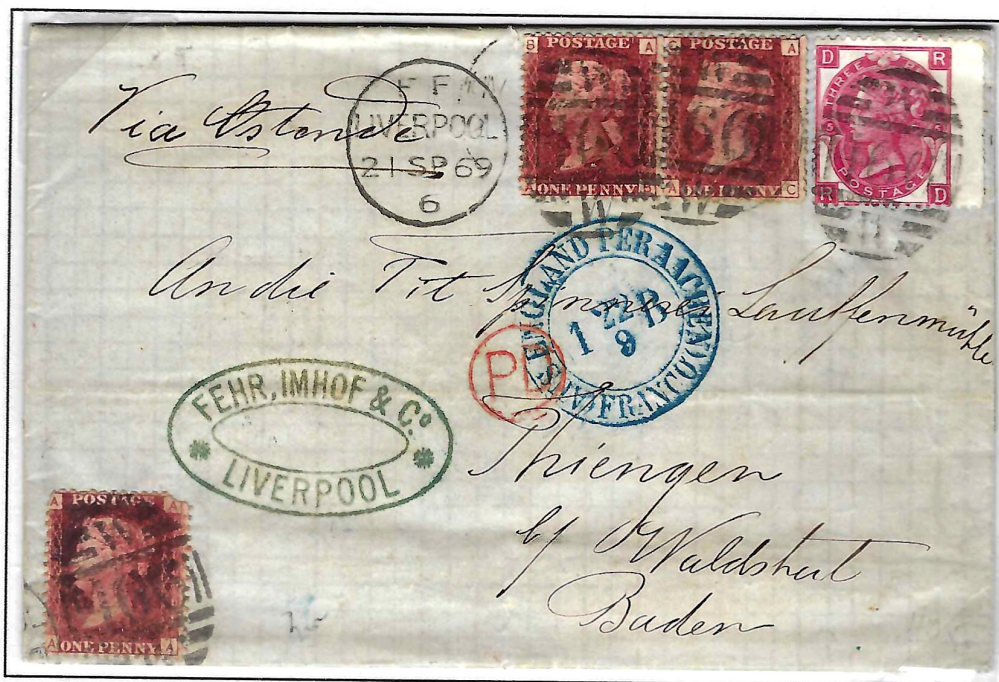 Via Ostende
LIVERPOOL
21 SP 69
6
B POSTAGE A
A ONE PENNY B
C POSTAGE A
A ONE PENNY C
D R
THREE PENCE
POSTAGE
R D
An die Tit Spinnerei Lauffenmühle
ENGLAND PER AACHEN FRANCO
1 22 B
9
PD
FEHR, IMHOF & Co.
LIVERPOOL
Thiengen
b/ Waldshut
Baden
A POSTAGE A
A ONE PENNY A